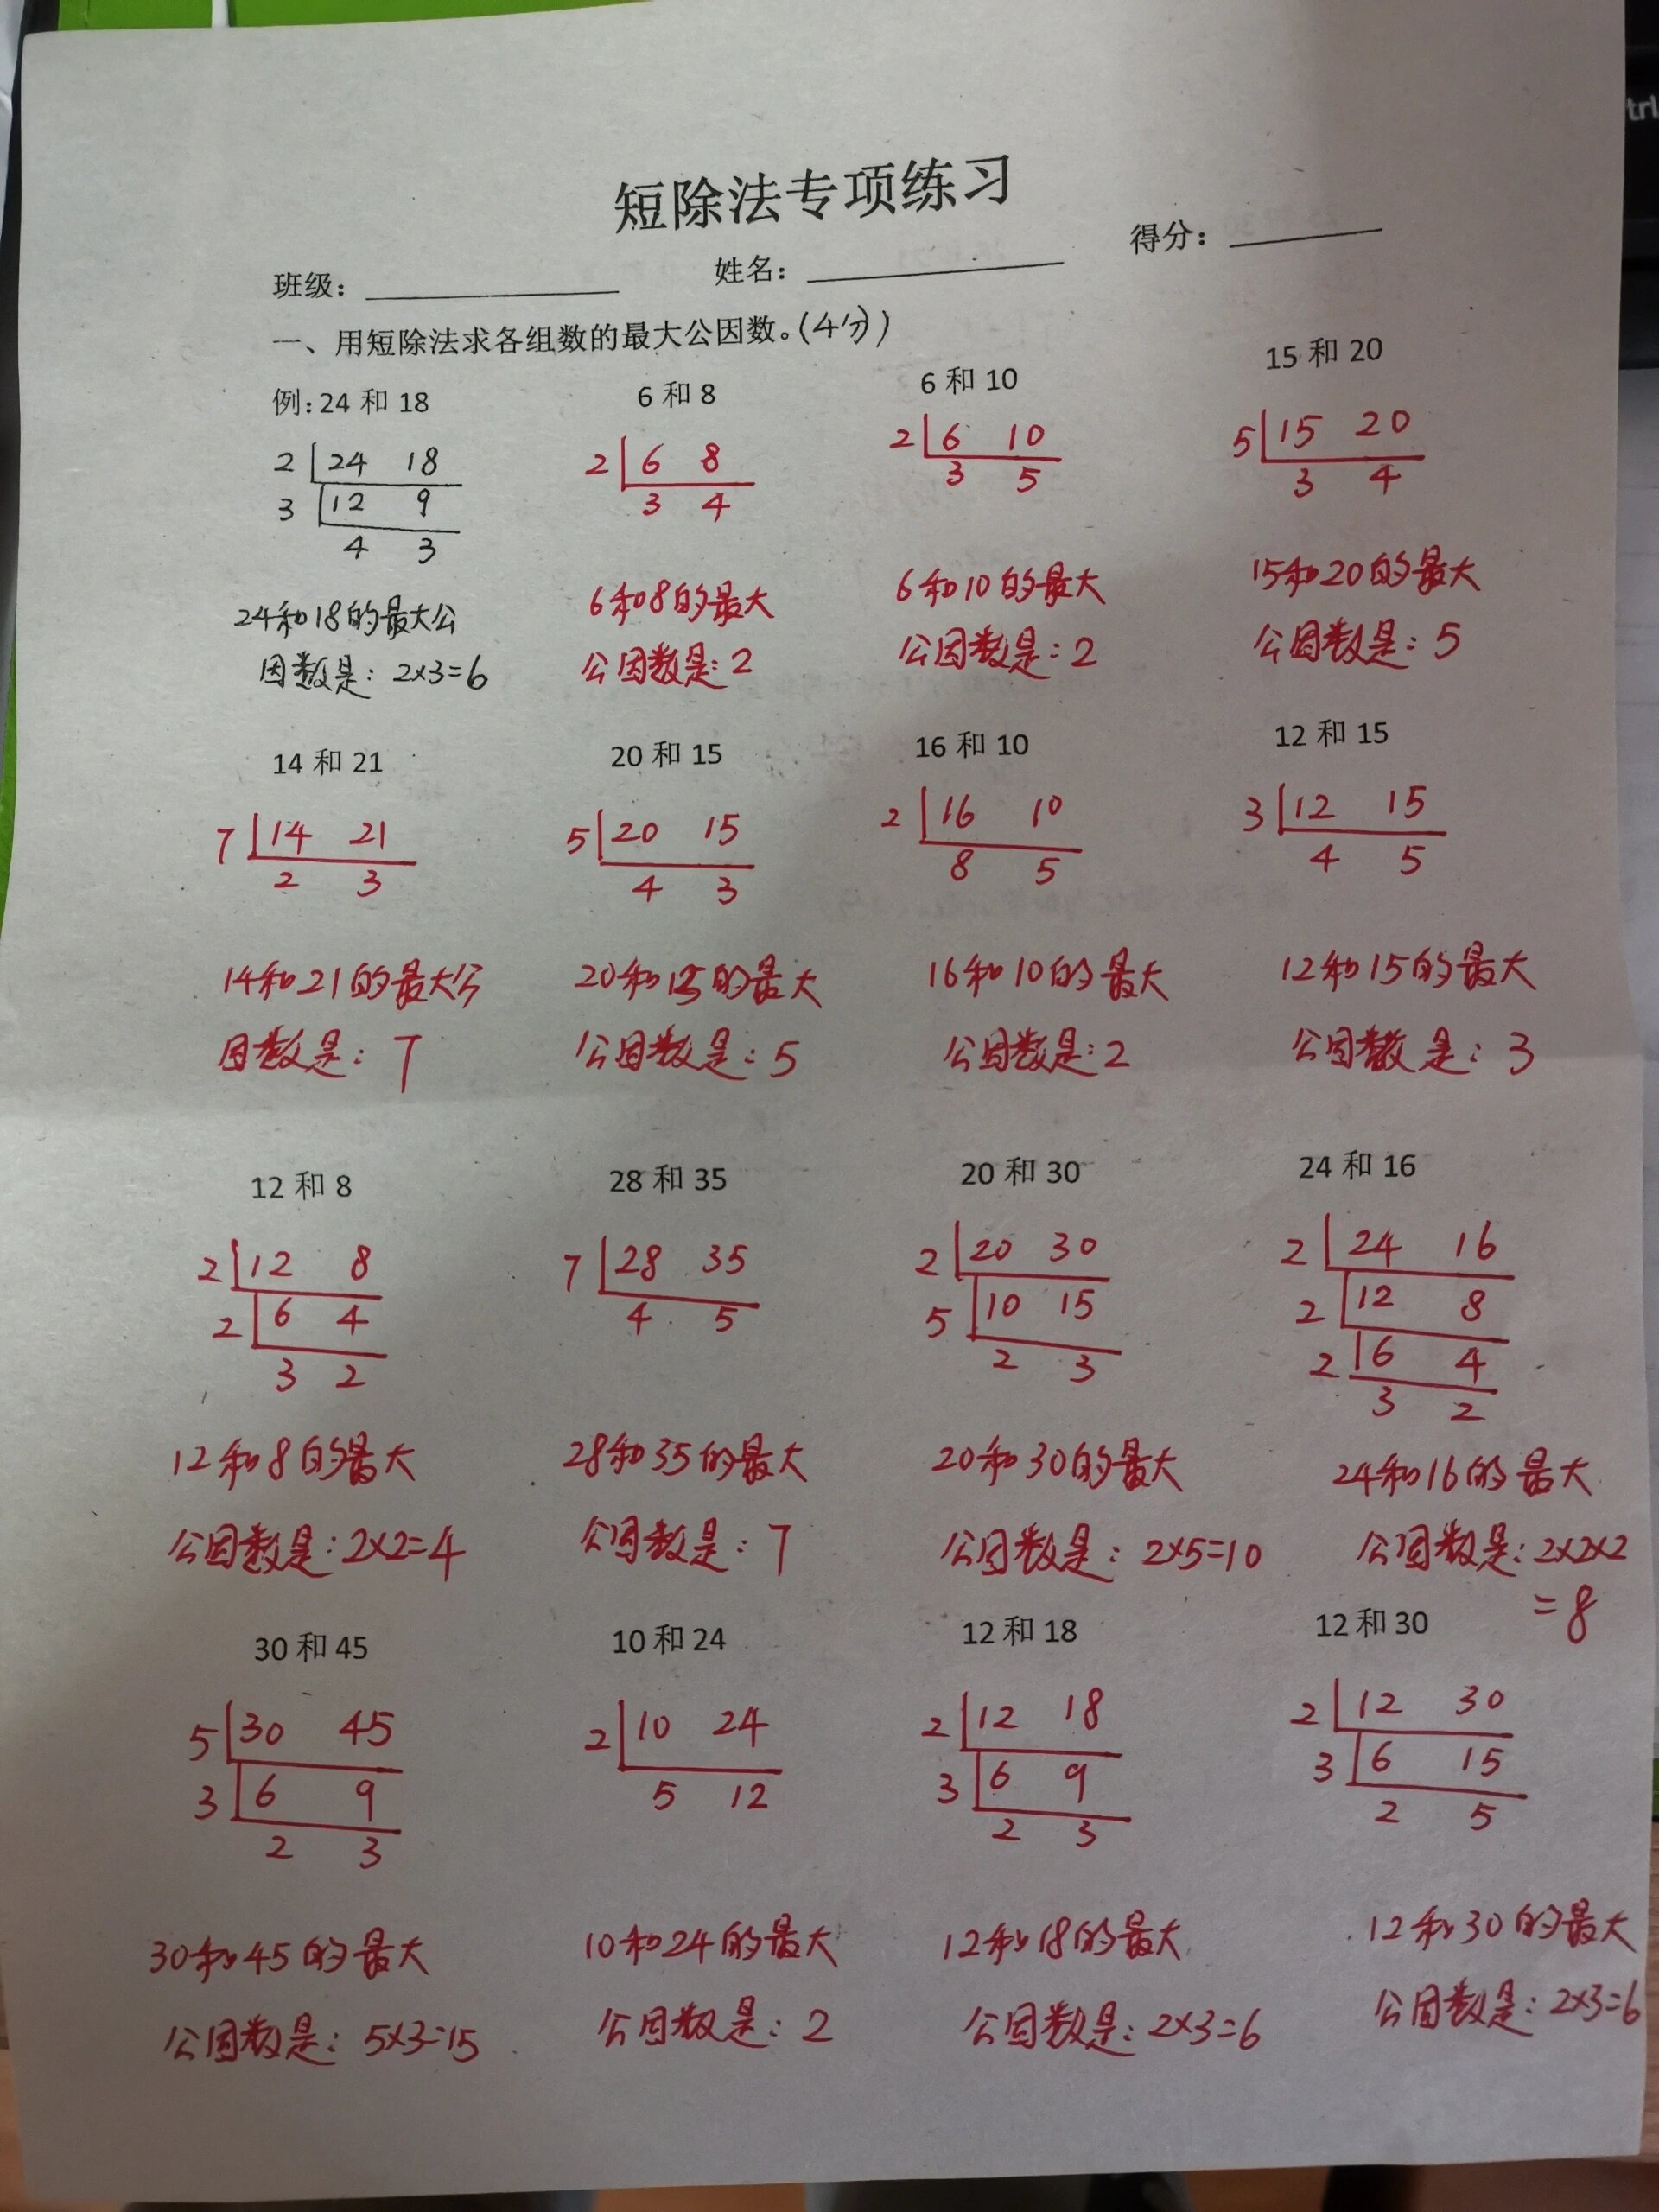 短除法专项练习
班级：
姓名：
得分：
一、用短除法求各组数的最大公因数。(4分)
例：24 和 18
6 和 8
6 和 10
15 和 20
2 24 18
3 12 9
4 3
2 6 8
3 4
2 6 10
3 5
5 15 20
3 4
24和18的最大公
因数是：2×3=6
6和8的最大
公因数是：2
6和10的最大
公因数是：2
15和20的最大
公因数是：5
14 和 21
20 和 15
16 和 10
12 和 15
7 14 21
2 3
5 20 15
4 3
2 16 10
8 5
3 12 15
4 5
14和21的最大公
因数是：7
20和15的最大
公因数是：5
16和10的最大
公因数是：2
12和15的最大
公因数是：3
12 和 8
28 和 35
20 和 30
24 和 16
2 12 8
2 6 4
3 2
7 28 35
4 5
2 20 30
5 10 15
2 3
2 24 16
2 12 8
2 6 4
3 2
12和8的最大
公因数是：2×2=4
28和35的最大
公因数是：7
20和30的最大
公因数是：2×5=10
24和16的最大
公因数是：2×2×2
=8
30 和 45
10 和 24
12 和 18
12 和 30
5 30 45
3 6 9
2 3
2 10 24
5 12
2 12 18
3 6 9
2 3
2 12 30
3 6 15
2 5
30和45的最大
公因数是：5×3=15
10和24的最大
公因数是：2
12和18的最大
公因数是：2×3=6
12和30的最大
公因数是：2×3=6
trl